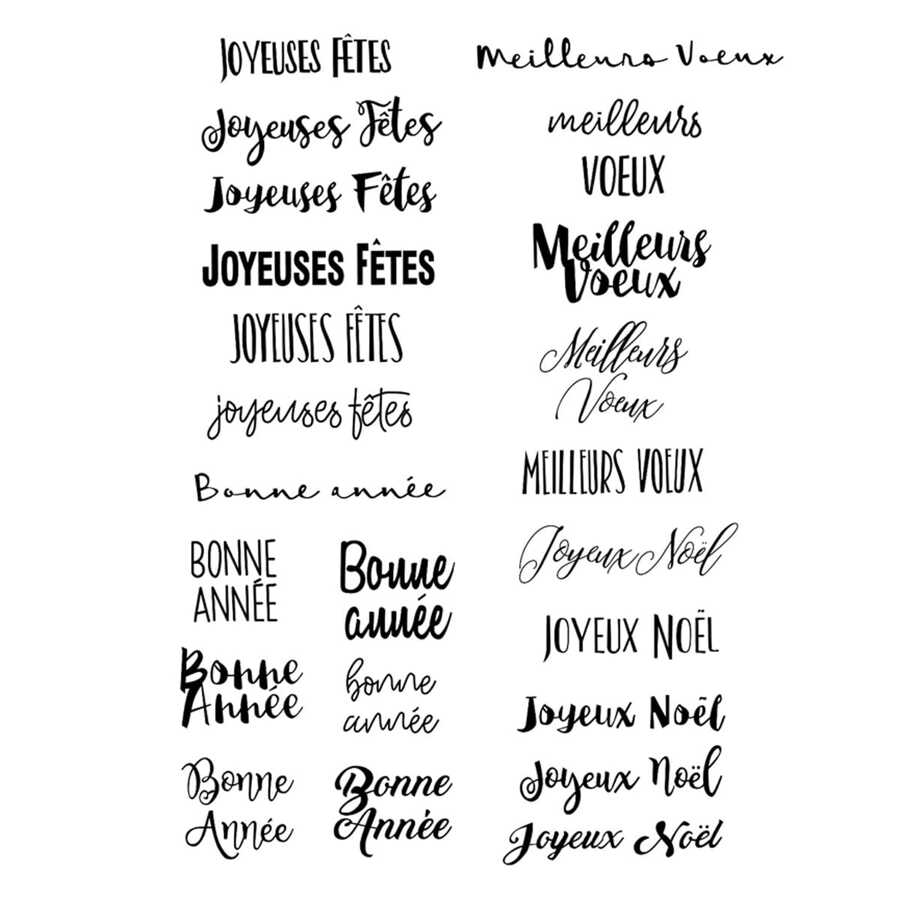 JOYEUSES FÊTES
Joyeuses Fêtes
Joyeuses Fêtes
JOYEUSES FÊTES
JOYEUSES FÊTES
joyeuses fêtes
Bonne année
BONNE
ANNÉE
Bonne
année
Bonne
Année
bonne
année
Bonne
Année
Bonne
Année
Meilleurs Voeux
meilleurs
VOEUX
Meilleurs
Voeux
Meilleurs
Voeux
MEILLEURS VOEUX
Joyeux Noël
JOYEUX NOËL
Joyeux Noël
Joyeux Noël
Joyeux Noël